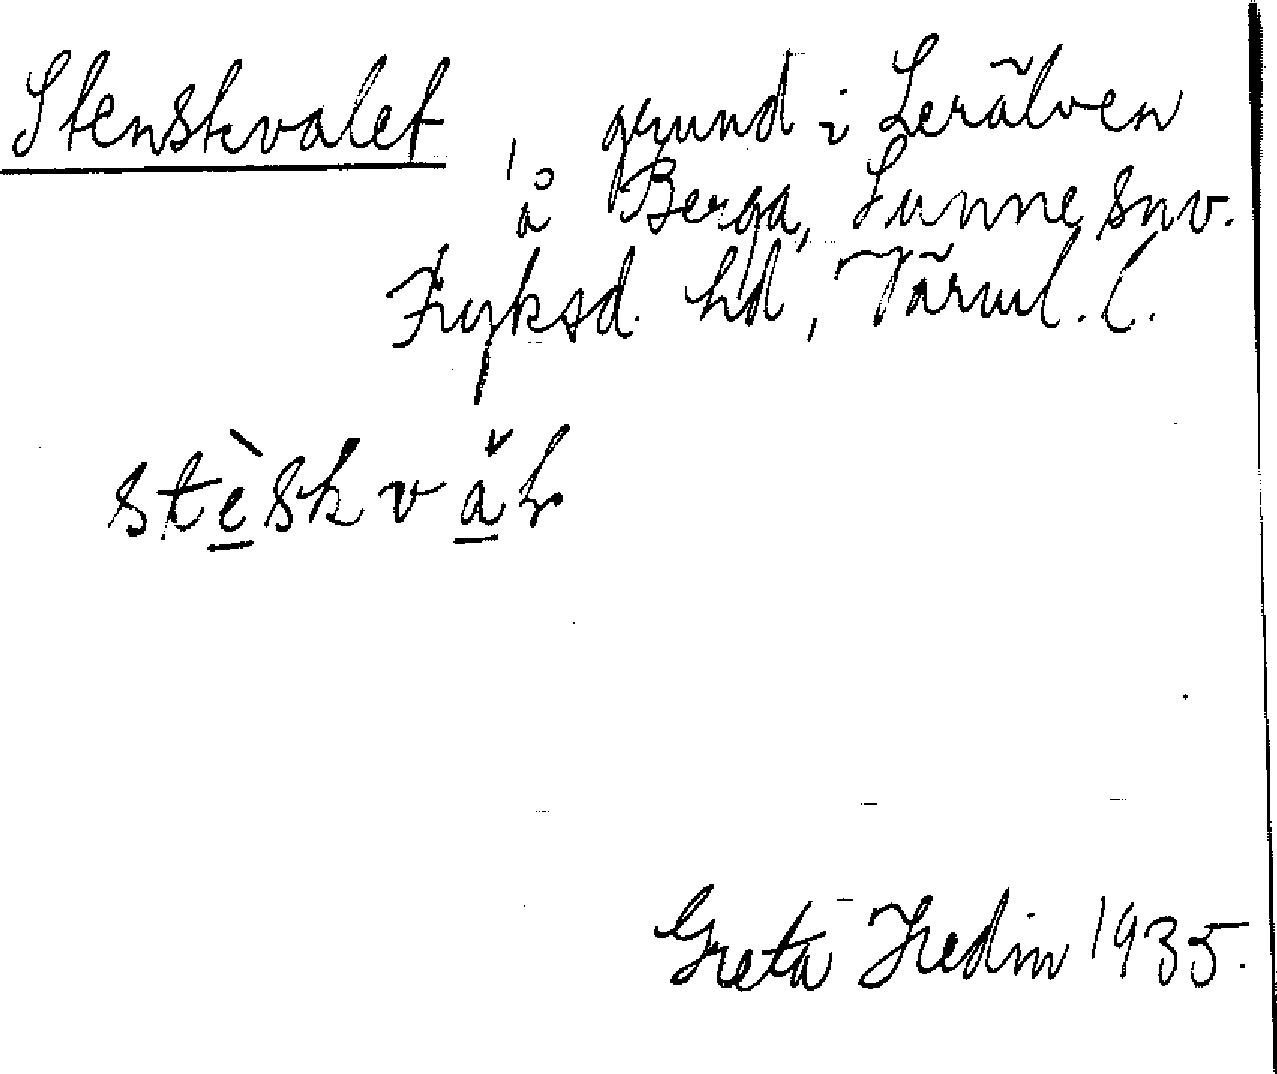 Stenskvalet, grund i Lerälven
å Berga, Sunne snv.
Fryksd. hd, Värml. l.
stèskvăl
Greta Hedin 1935.